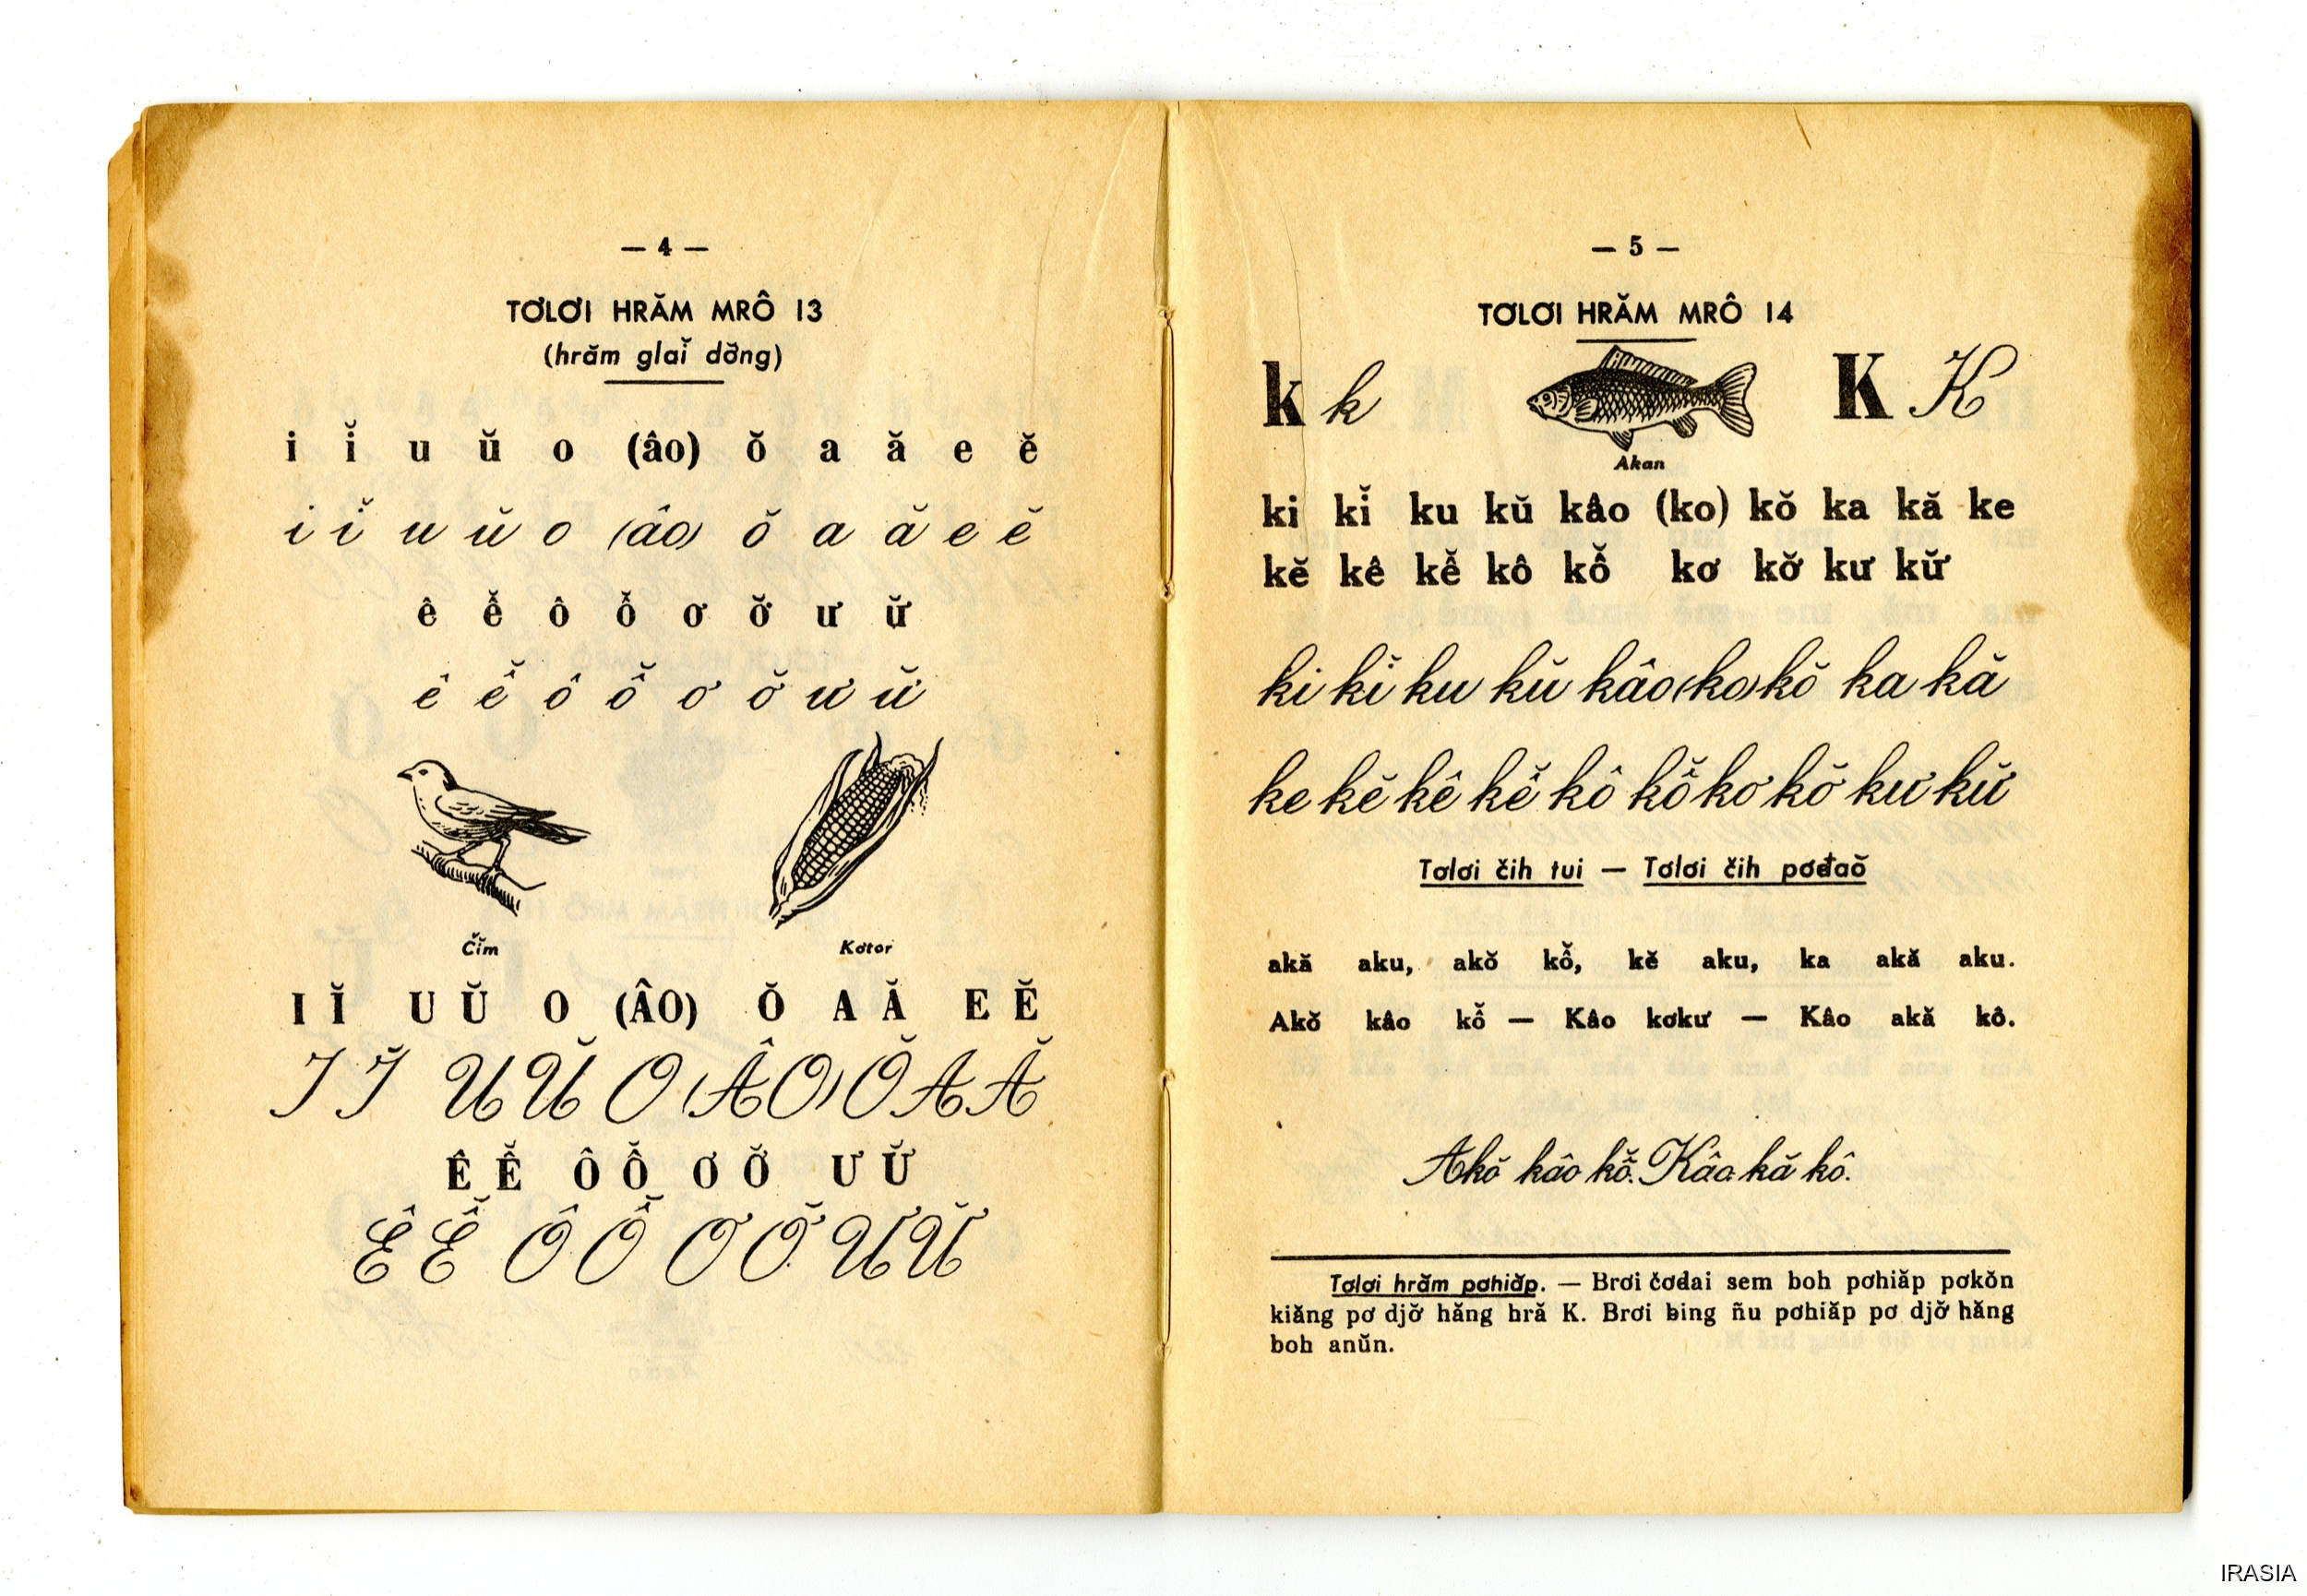 — 4 —
TƠLƠI HRĂM MRÔ 13
(hrăm glaĭ dơ̆ng)
i ĭ u ŭ o (âo) ŏ a ă e ĕ
i ĭ u ŭ o (âo) ŏ a ă e ĕ
ê ê̆ ô ô̆ ơ ơ̆ ư ư̆
ê ê̆ ô ô̆ ơ ơ̆ ư ư̆
Čĭm Kơtor
I Ĭ U Ŭ O (ÂO) Ŏ A Ă E Ĕ
I Ĭ U Ŭ O (ÂO) Ŏ A Ă
Ê Ê̆ Ô Ô̆ Ơ Ơ̆ Ư Ư̆
Ê Ê̆ Ô Ô̆ Ơ Ơ̆ Ư Ư̆
— 5 —
TƠLƠI HRĂM MRÔ 14
k k K K
Akan
ki kĭ ku kŭ kâo (ko) kŏ ka kă ke
kĕ kê kê̆ kô kô̆ kơ kơ̆ kư kư̆
ki kĭ ku kŭ kâo (ko) kŏ ka kă
ke kĕ kê kê̆ kô kô̆ kơ kơ̆ kư kư̆
Tơlơi čih tui — Tơlơi čih pơđaŏ
akă aku, akŏ kô̆, kĕ aku, ka akă aku.
Akŏ kâo kô̆ — Kâo kơkư — Kâo akă kô.
Akŏ kâo kô̆. Kâo kă kô.
Tơlơi hrăm pơhiăp. — Brơi čơđai sem boh pơhiăp pơkŏn
kiăng pơ djơ̆ hăng hră K. Brơi ƀing ñu pơhiăp pơ djơ̆ hăng
boh anŭn.
IRASIA